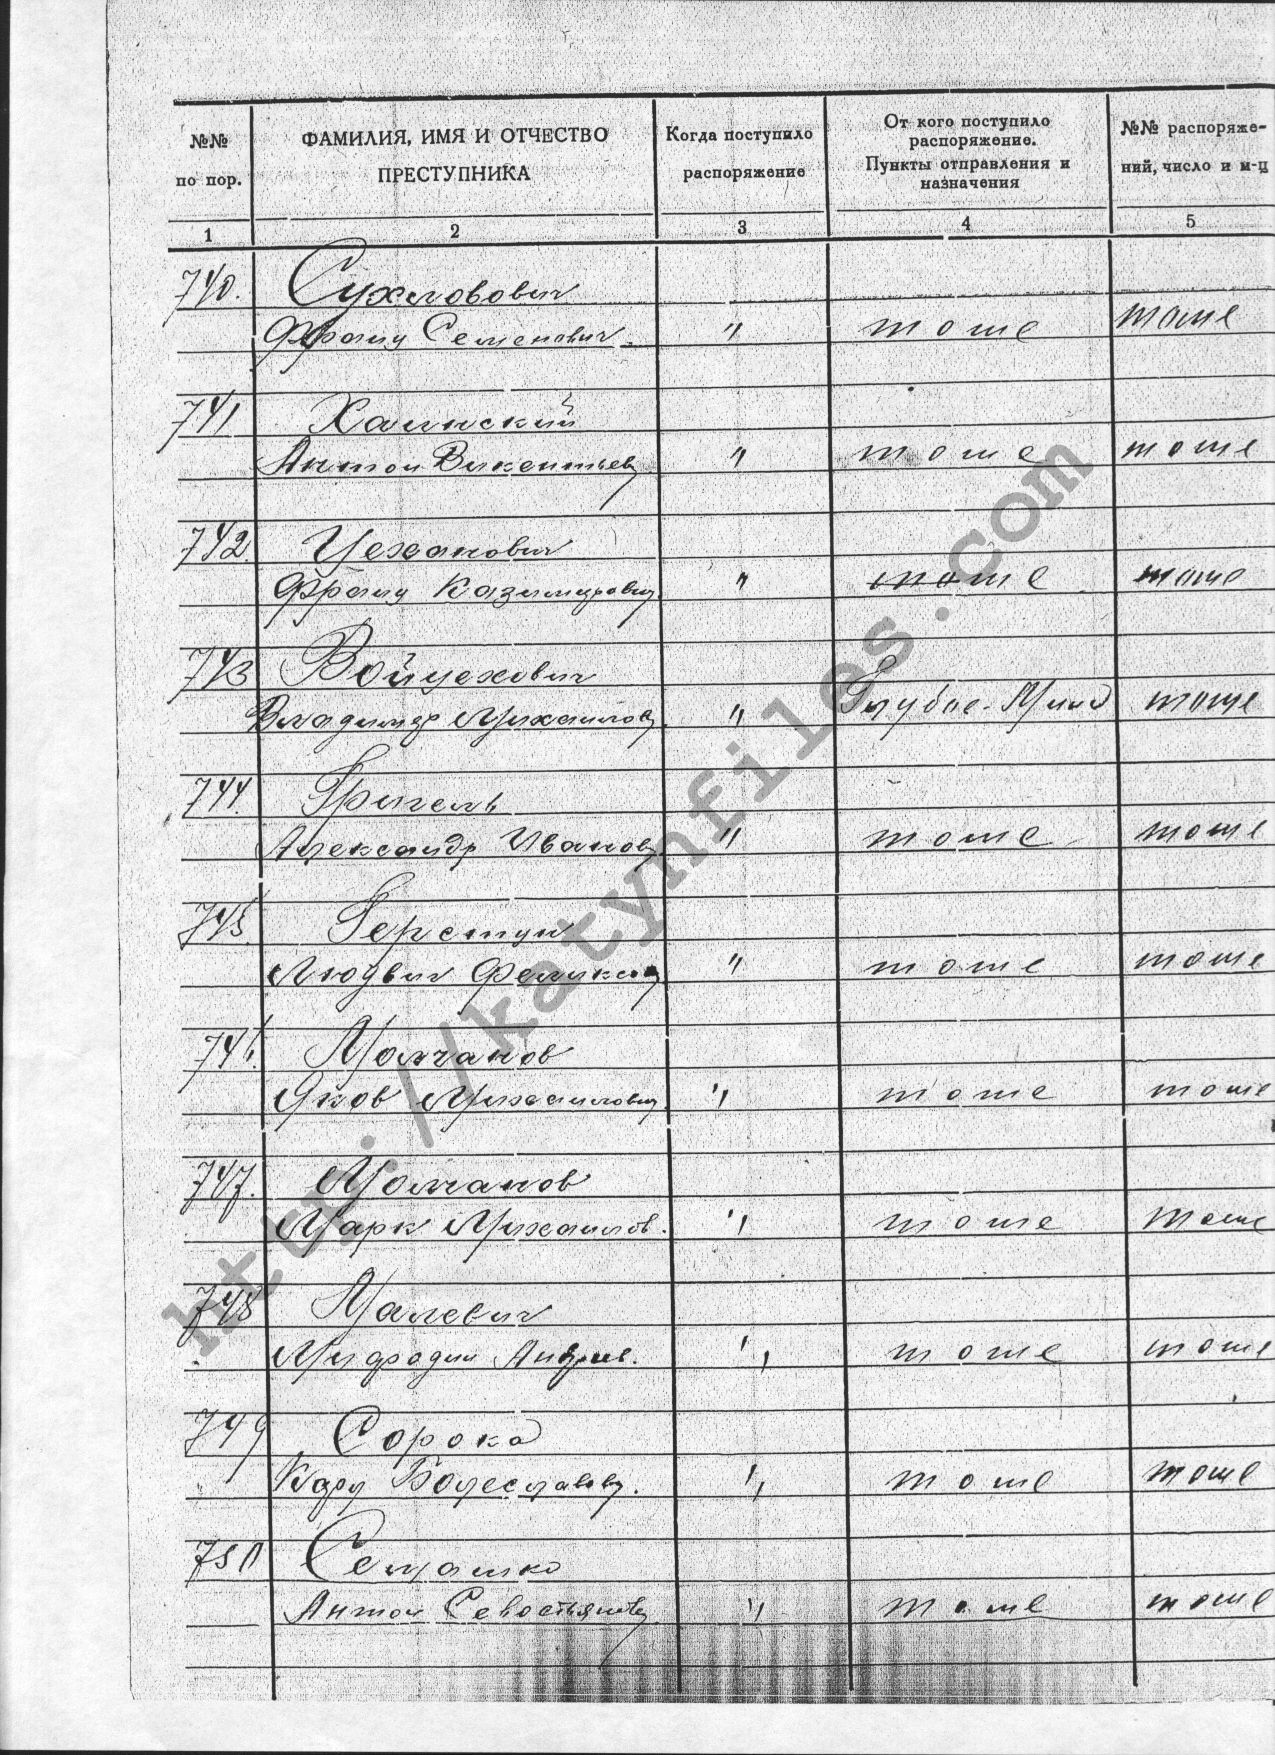 №№ по пор. ФАМИЛИЯ, ИМЯ И ОТЧЕСТВО ПРЕСТУПНИКА Когда поступило распоряжение От кого поступило распоряжение. Пункты отправления и назначения №№ распоряже-ний, число и м-ц
1 2 3 4 5
740. Сухловович
Франц Семенович. " тоже тоже
741 Халинский
Антон Викентьев " тоже тоже
742. Цеханович
Франц Казимирович " тоже тоже
743 Войцехович
Владимир Михайлов. " Глубок-Минск тоже
744. Григель
Александр Иванов " тоже тоже
745. Герстун
Людвиг Феликсов " тоже тоже
746. Молчанов
Яков Михайлович " тоже тоже
747. Молчанов
Марк Михайлов. " тоже тоже
748 Малевич
Мифодий Андреев. " тоже тоже
749 Сорока
Карл Болеславов. " тоже тоже
750 Семашко
Антон Севостьянов " тоже тоже
http://katynfiles.com